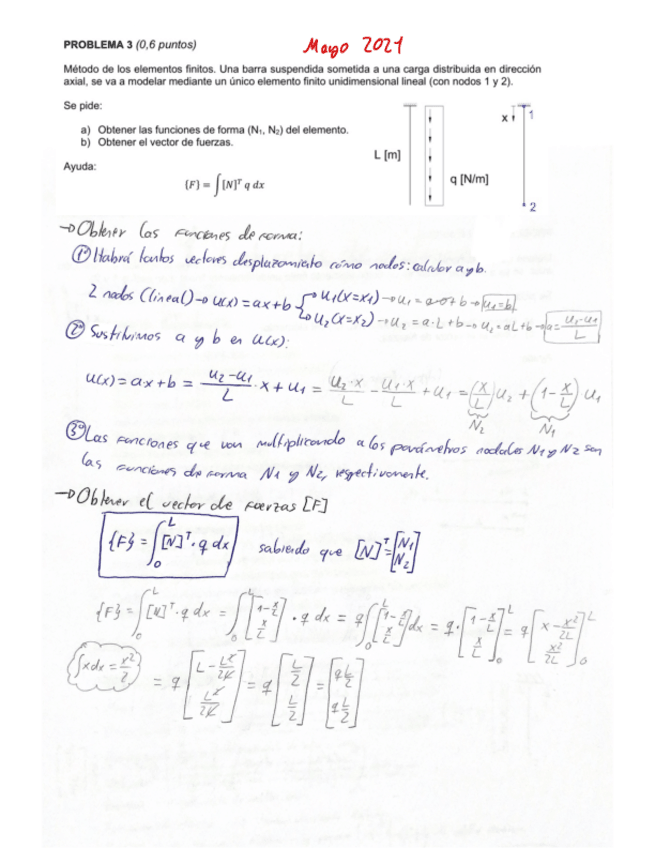 PROBLEMA 3 (0,6 puntos)
Mayo 2021
Método de los elementos finitos. Una barra suspendida sometida a una carga distribuida en dirección
axial, se va a modelar mediante un único elemento finito unidimensional lineal (con nodos 1 y 2).
Se pide:
a) Obtener las funciones de forma (N₁, N₂) del elemento.
b) Obtener el vector de fuerzas.
Ayuda:
{F} = ∫[N]ᵀ q dx
L [m]
q [N/m]
x
1
2
→ Obtener las funciones de forma:
① Habrá tantos vectores desplazamiento cómo nodos: calcular a y b.
2 nodos (lineal) → u(x) = ax+b → u₁(x=x₁) → u₁ = a·0+b → u₁=b
→ u₂(x=x₂) → u₂ = a·L+b → u₂ = aL+b → a = (u₂-u₁)/L
2º Sustituimos a y b en u(x):
u(x) = ax+b = (u₂-u₁)/L · x + u₁ = u₂·x/L - u₁·x/L + u₁ = (x/L) u₂ + (1-x/L) u₁
N₂ N₁
3º Las funciones que van multiplicando a los parámetros nodales N1 y N2 son
las funciones de forma N1 y N2, respectivamente.
→ Obtener el vector de fuerzas [F]
{F} = ∫₀ᴸ [N]ᵀ · q dx sabiendo que [N]ᵀ = [N₁ N₂]
{F} = ∫₀ᴸ [N]ᵀ · q dx = ∫₀ᴸ [1-x/L x/L] · q dx = q ∫₀ᴸ [1-x/L x/L] dx = q · [1-x/L x/L]₀ᴸ = q [x-x²/2L x²/2L]₀ᴸ
∫x dx = x²/2
= q [L-L²/2L L²/2L] = q [L/2 L/2] = [qL/2 qL/2]